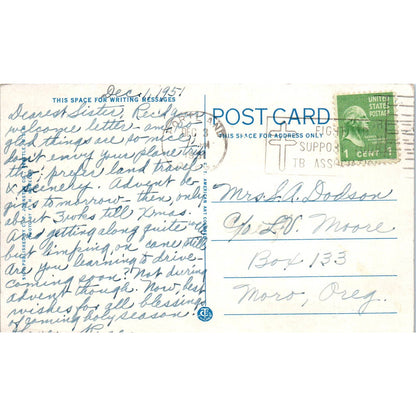 Dec. 1, 1951
THIS SPACE FOR WRITING MESSAGES
Dearest Sister, Rec'd yr
welcome letter and
good things are so nice,
don't envy your plane trip
tho'; prefer land travel
& scenery. Advent be-
gins tomorrow - then only
about 3 wks till Xmas.
Am getting along quite well
but limping, on cane still.
Are you learning to drive -
coming soon? Not during
advent though. Now, best
wishes for all blessings
of coming holy season.
POST CARD
THIS SPACE FOR ADDRESS ONLY
DEC 3
FIGHT
SUPPO
TB ASSO
UNITED
STATES
POSTAGE
1 CENT 1
Mrs L.A. Dodson
C/o L.V. Moore
Box 133
Moro, Oreg.